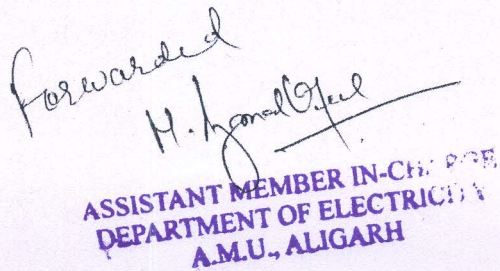 Forwarded
M.
ASSISTANT MEMBER IN-CHARGE
DEPARTMENT OF ELECTRICITY
A.M.U., ALIGARH